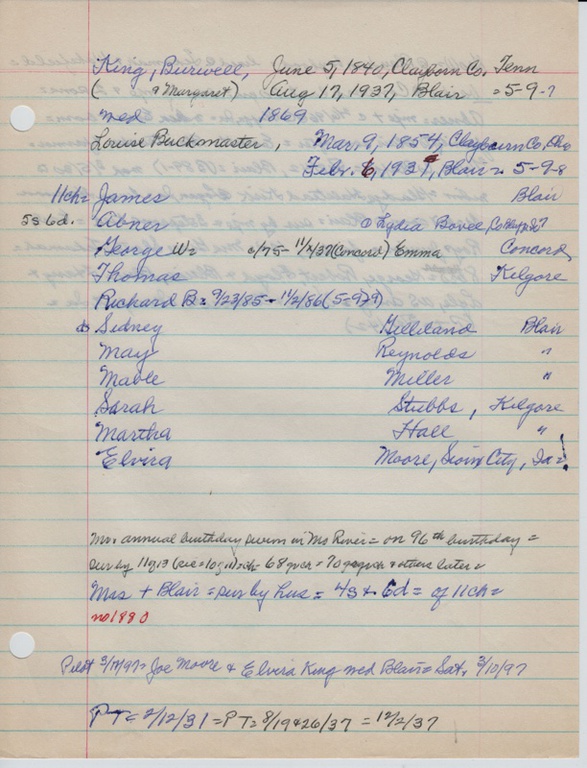 King, Burwell, June 5, 1840, Clayborn Co. Tenn
( & Margaret) Aug 17, 1937, Blair = 5-9-7
wed 1869
Louise Buckmaster, Mar, 9, 1854, Claybourn Co,
Febr. 6, 1931, Blair = 5-9-8
11ch = James Blair
5s 6d. Abner Lydia Bovee,
George W = c/75 - 11/ /37 (Concord) Emma Concord
Thomas Kilgore
Richard B = 9/23/85 - 11/2/86 (5-9-9)
Sidney Gilliland Blair
May Reynolds "
Mable Miller "
Sarah Stubbs, Kilgore
Martha Hall "
Elvira Moore, Sioux City, Ia =
Mr = annual birthday swim in Mo River = on 96th birthday =
sur by 11 of 13 = 68 gch = 70 & others later =
Mrs + Blair = sur by hus = 4s & 6d = of 11ch =
no 1880
Pilot 3/ /97 = Joe Moore & Elvira King wed Blair = Sat, 3/10/97
PT = 2/12/31 = PT = 8/19&26/37 = 12/2/37